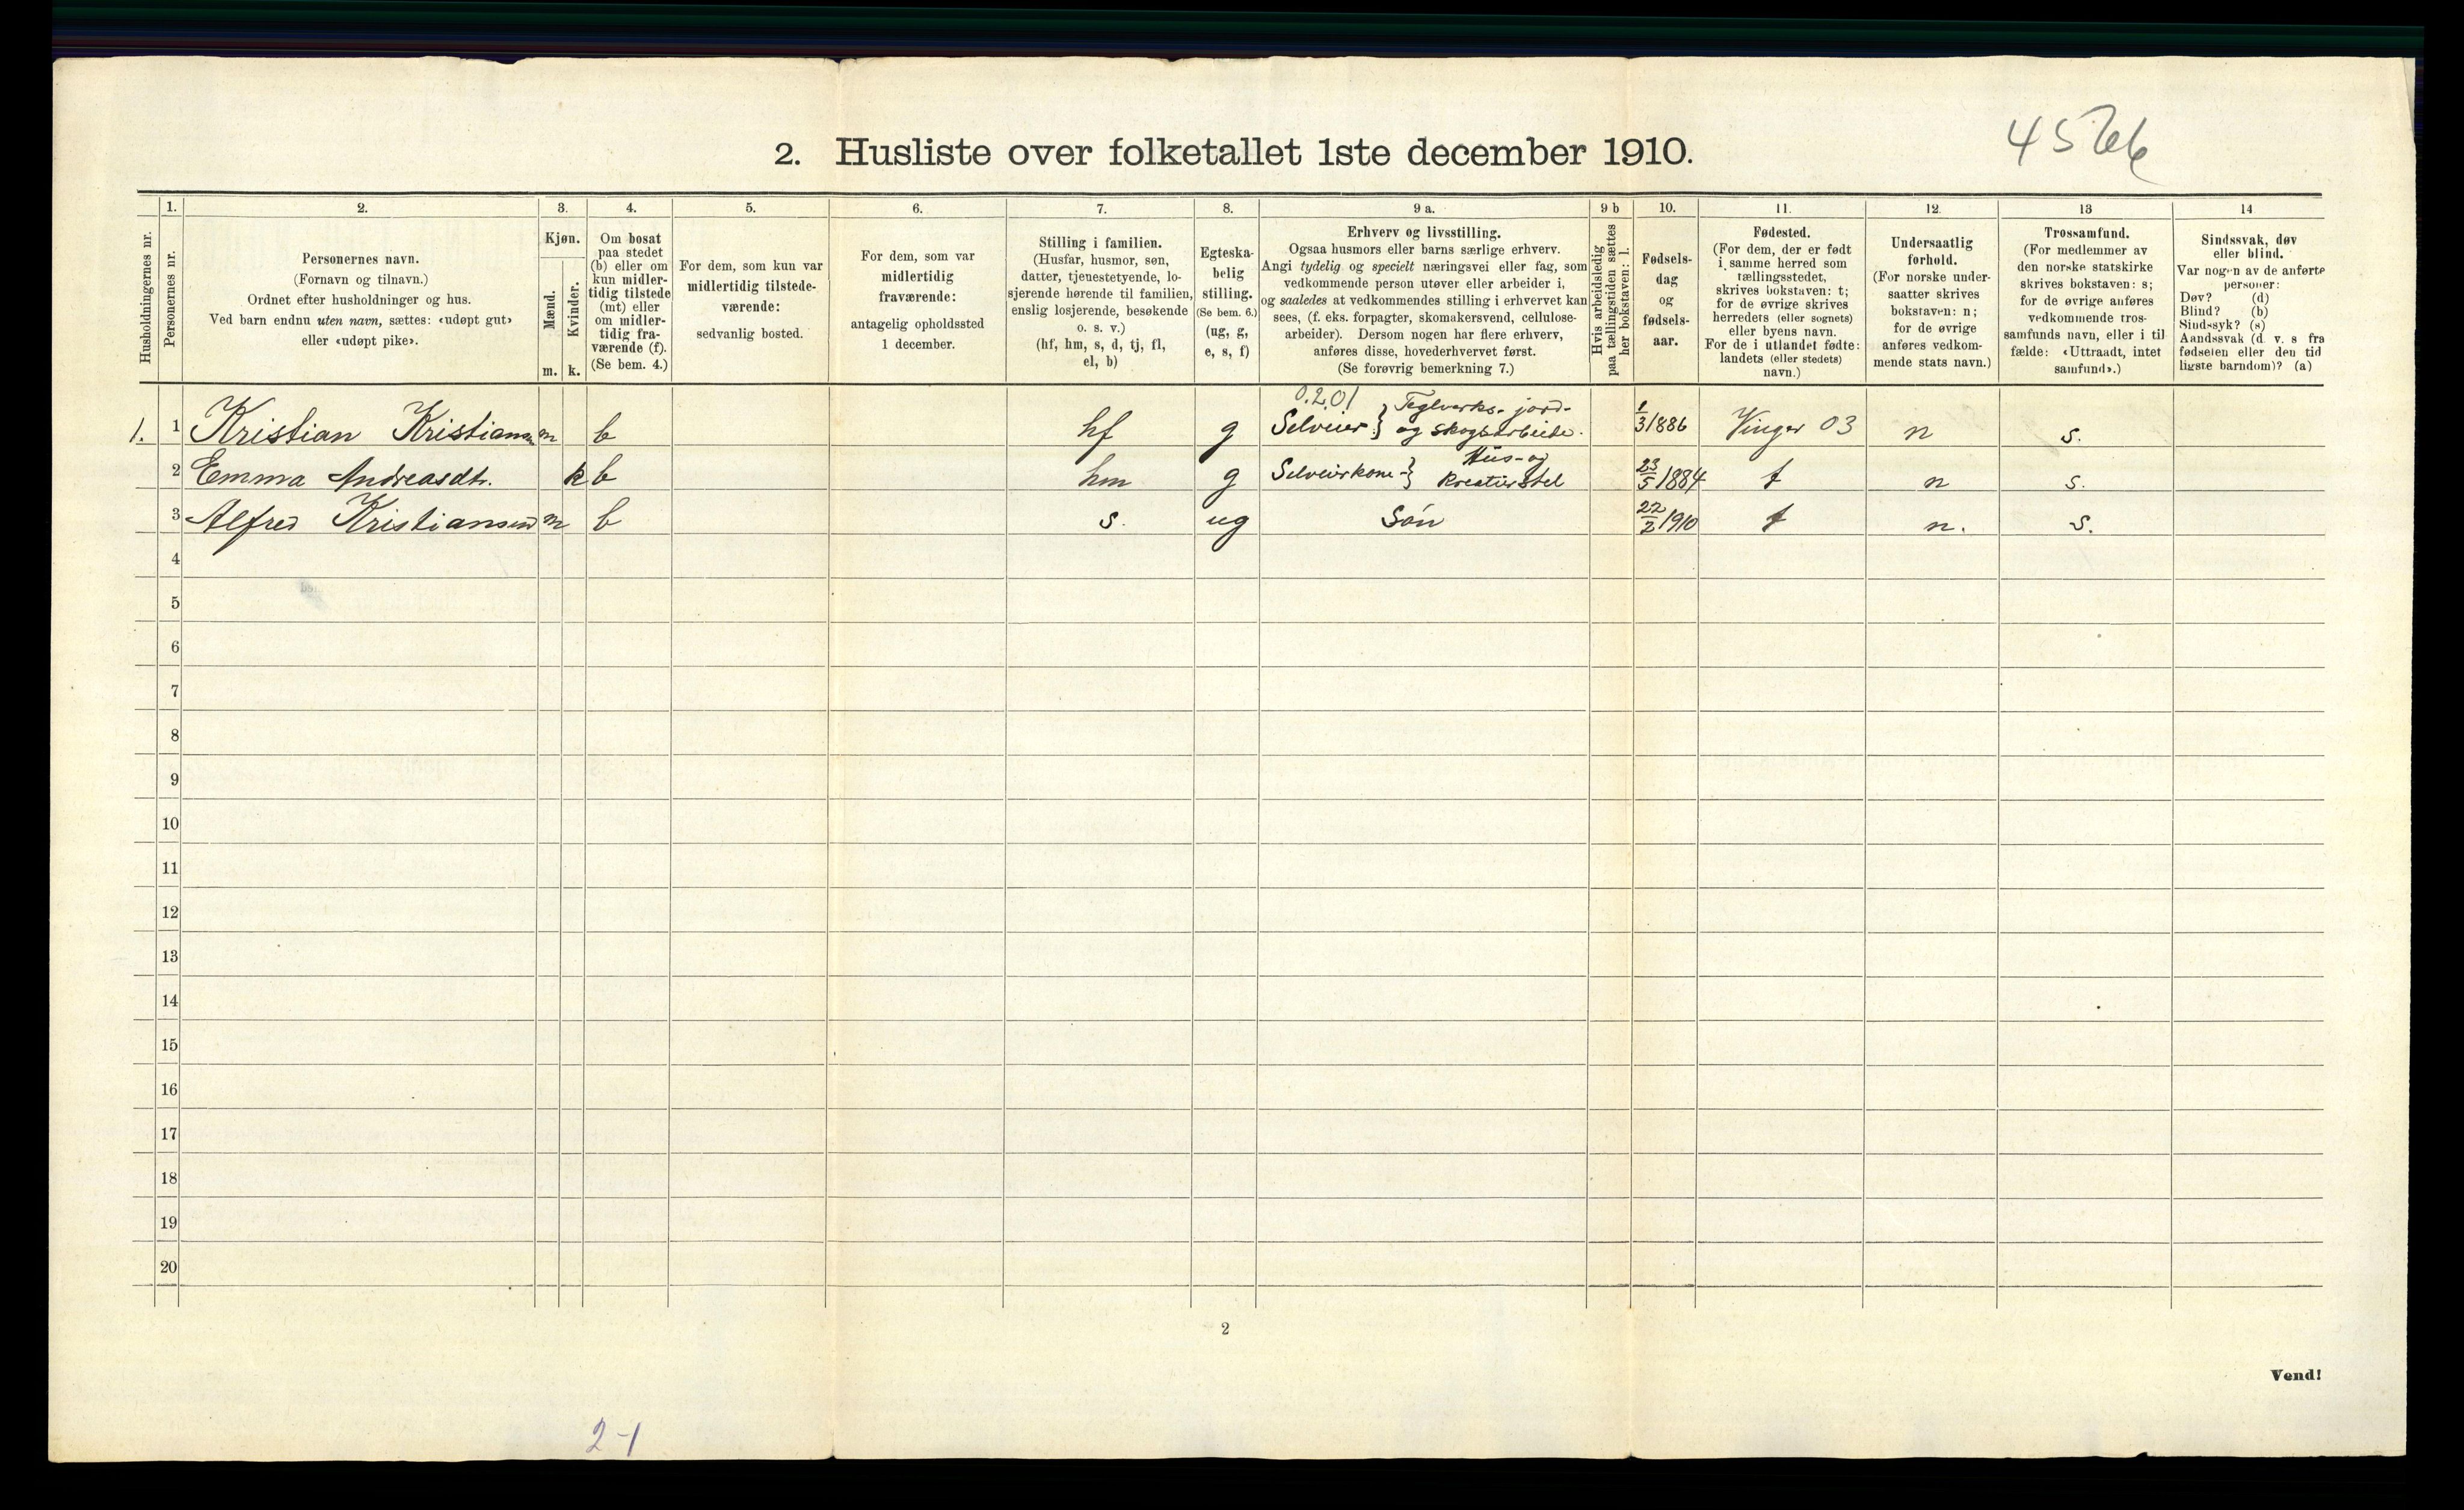 2. Husliste over folketallet 1ste december 1910.
Husholdningernes nr.
1.
Personernes nr.
2.
Personernes navn.
(Fornavn og tilnavn.)
Ordnet efter husholdninger og hus.
Ved barn endnu uten navn, sættes: «udøpt gut»
eller «udøpt pike».
3.
Kjøn.
Mænd.
Kvinder.
m. k.
4.
Om bosat
paa stedet
(b) eller om
kun midler-
tidig tilstede
(mt) eller
om midler-
tidig fra-
værende (f).
(Se bem. 4.)
5.
For dem, som kun var
midlertidig tilstede-
værende:
sedvanlig bosted.
6.
For dem, som var
midlertidig
fraværende:
antagelig opholdssted
1 december.
7.
Stilling i familien.
(Husfar, husmor, søn,
datter, tjenestetyende, lo-
sjerende hørende til familien,
enslig losjerende, besøkende
o. s. v.)
(hf, hm, s, d, tj, fl,
el, b)
8.
Egteska-
belig
stilling.
(Se bem. 6.)
(ug, g,
e, s, f)
9 a.
Erhverv og livsstilling.
Ogsaa husmors eller barns særlige erhverv.
Angi tydelig og specielt næringsvei eller fag, som
vedkommende person utøver eller arbeider i,
og saaledes at vedkommendes stilling i erhvervet kan
sees, (f. eks. forpagter, skomakersvend, cellulose-
arbeider). Dersom nogen har flere erhverv,
anføres disse, hovederhvervet først.
(Se forøvrig bemerkning 7.)
9 b
Hvis arbeidsledig
paa tællingstiden sættes
her bokstaven: l.
10.
Fødsels-
dag
og
fødsels-
aar.
11.
Fødested.
(For dem, der er født
i samme herred som
tællingsstedet,
skrives bokstaven: t;
for de øvrige skrives
herredets (eller sognets)
eller byens navn.
For de i utlandet fødte:
landets (eller stedets)
navn.)
12.
Undersaatlig
forhold.
(For norske under-
saatter skrives
bokstaven: n;
for de øvrige
anføres vedkom-
mende stats navn.)
13
Trossamfund.
(For medlemmer av
den norske statskirke
skrives bokstaven: s;
for de øvrige anføres
vedkommende tros-
samfunds navn, eller i til
fælde: «Uttraadt, intet
samfund».)
14
Sindssvak, døv
eller blind.
Var nogen av de anførte
personer:
Døv? (d)
Blind? (b)
Sindssyk? (s)
Aandssvak (d. v. s fra
fødselen eller den tid
ligste barndom)? (a)
0.201
1. 1 Kristian Kristiansen m b hf g Selveier } Teglverks- jord- og skogsarbeide. 1/3 1886 Vinger 03 n s.
2 Emma Andreasdtr. k b hm g Selveierkone - } Hus- og Kreaturstel 23/5 1884 t n s.
3 Alfred Kristiansen m b s. ug Søn 22/2 1910 t n. s.
4
5
6
7
8
9
10
11
12
13
14
15
16
17
18
19
20
2
Vend!
2-1